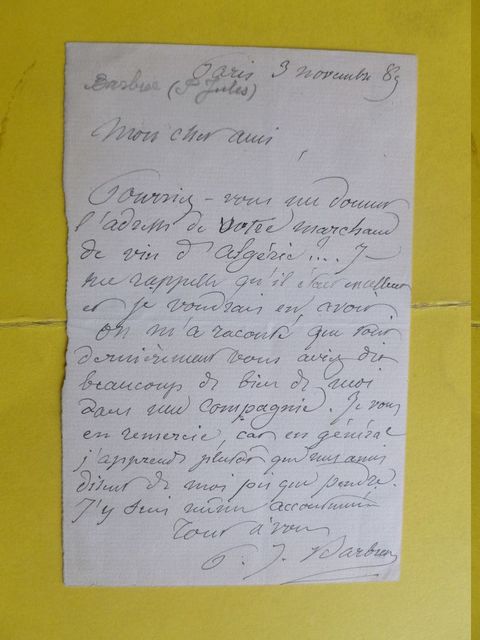 Paris 3 novembre 89
Barbier (P. Jules)
Mon cher ami
Pourriez-vous me donner
l'adresse de votre marchand
de vin d'Algérie... Je
me rappelle qu'il était excellent
et je voudrais en avoir
On m'a raconté que tout
dernièrement vous aviez dit
beaucoup de bien de moi
dans une compagnie. Je vous
en remercie, car en général
j'apprends plutôt que mes amis
disent de moi pis que pendre.
J'y suis même accoutumé
Tout à vous
P. J. Barbier